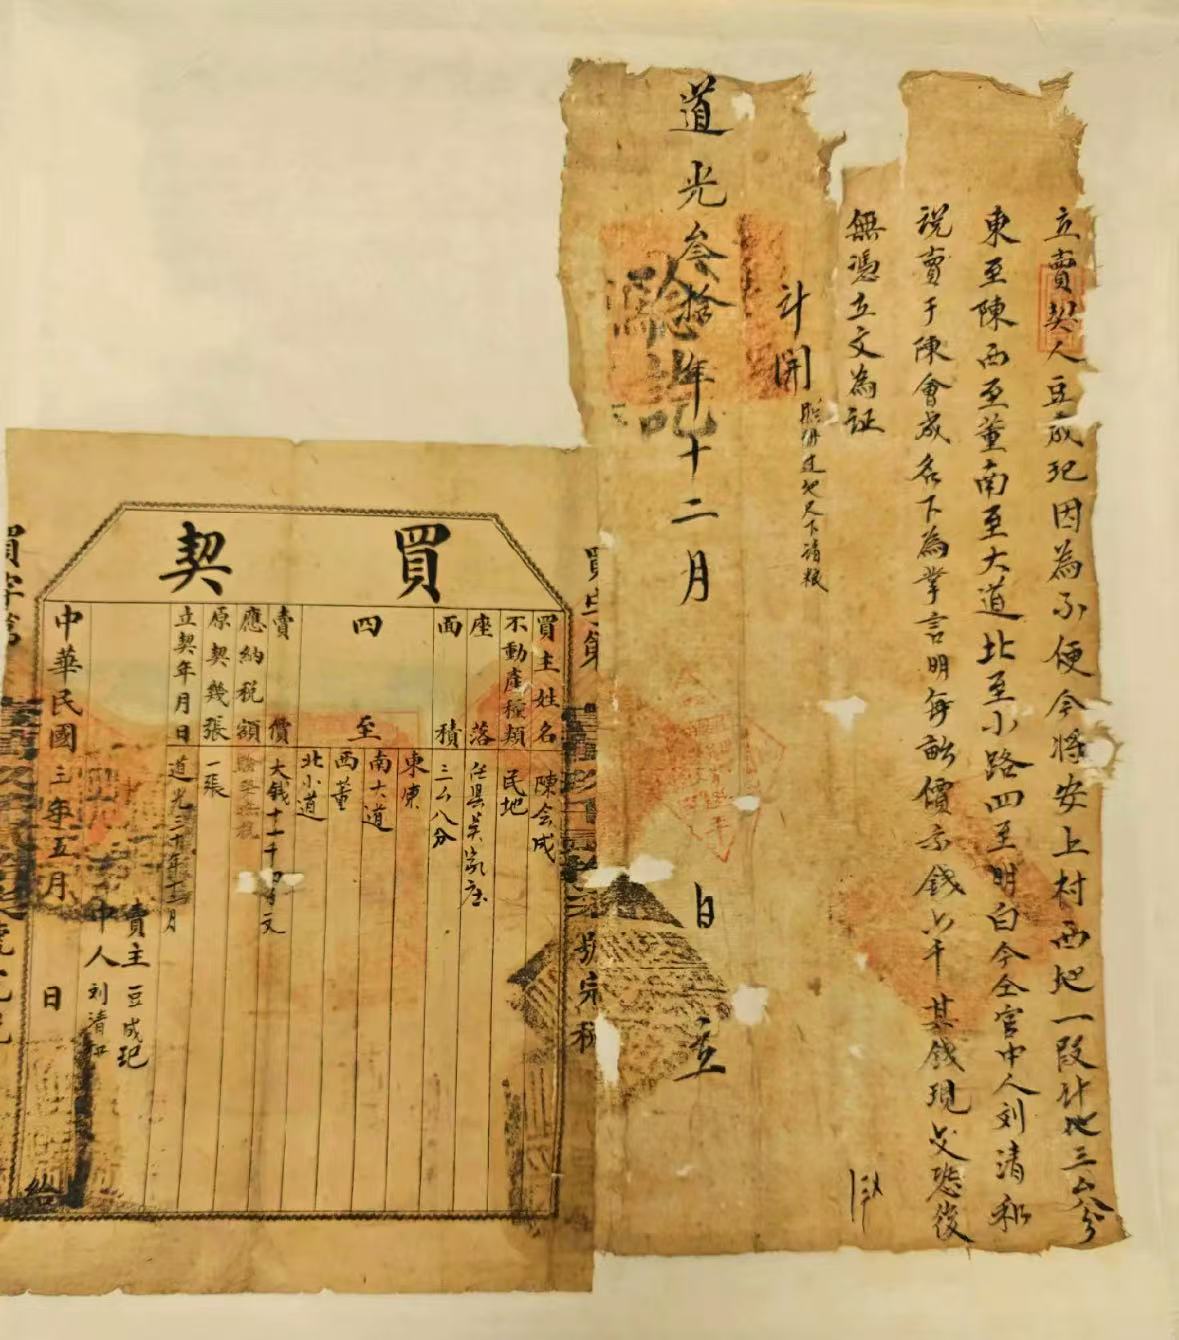 立賣契人豆成玘因為不便今將安上村西地一段計地三厶八分
東至陳西至董南至大道北至小路四至明白今仝官中人刘清和
說賣于陳會成名下為業言明每畝價示錢六千其錢現交恐後
無憑立文為証
計開
道光叁拾年十二月 日 立
驗訖
買契
買主姓名 陳会成
不動產種類 民地
座落 任县吴家庄
面積 三厶八分
四至 東陳 南大道 西董 北小道
賣價 大錢十一千四百文
應納税額
原契幾張 一張
立契年月日 道光三十年十二月
賣主 豆成玘
中人 刘清和
中華民國三年五月 日 給
買字第